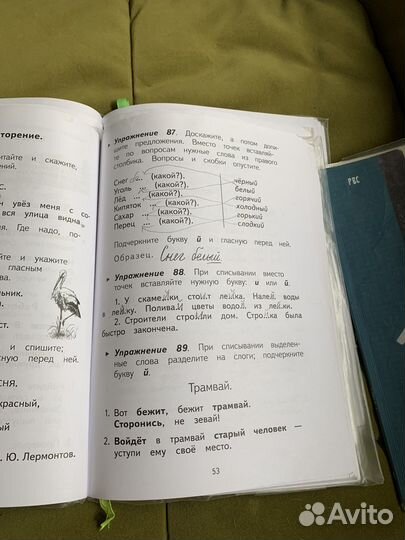 торение.
читайте и скажите,
ений.
он увёз меня с со-
вся улица видна
ром. Где надо, по-
и укажите
гласным
ьник.
т.
и спишите;
ую перед ней.
СНЯ.
красный,
ый
. Ю. Лермонтов.
Упражнение 87. Доскажите, а потом допи-
шите предложения. Вместо точек вставляй-
те по вопросам нужные слова из правого
столбика. Вопросы и скобки опустите.
Снег ... (какой?).
Уголь ... (какой?).
Лёд ... (какой?).
Кипяток ... (какой?).
Сахар ... (какой?).
Перец ... (какой?).
чёрный
белый
горячий
холодный
горький
сладкий
Подчеркните букву й и гласную перед ней.
Образец. Снег белый.
Упражнение 88. При списывании вместо
точек вставляйте нужную букву: и или й.
1. У скамейки стоит лейка. Налей воды
в лейку. Поливай цветы водой из лейки.
2. Строители строили дом. Стройка была
быстро закончена.
Упражнение 89. При списывании выделен-
ные слова разделите на слоги; подчеркните
букву й.
Трамвай.
1. Вот бежит, бежит трамвай.
Сторонись, не зевай!
2. Войдёт в трамвай старый человек —
уступи ему своё место.
53
РВС
Avito